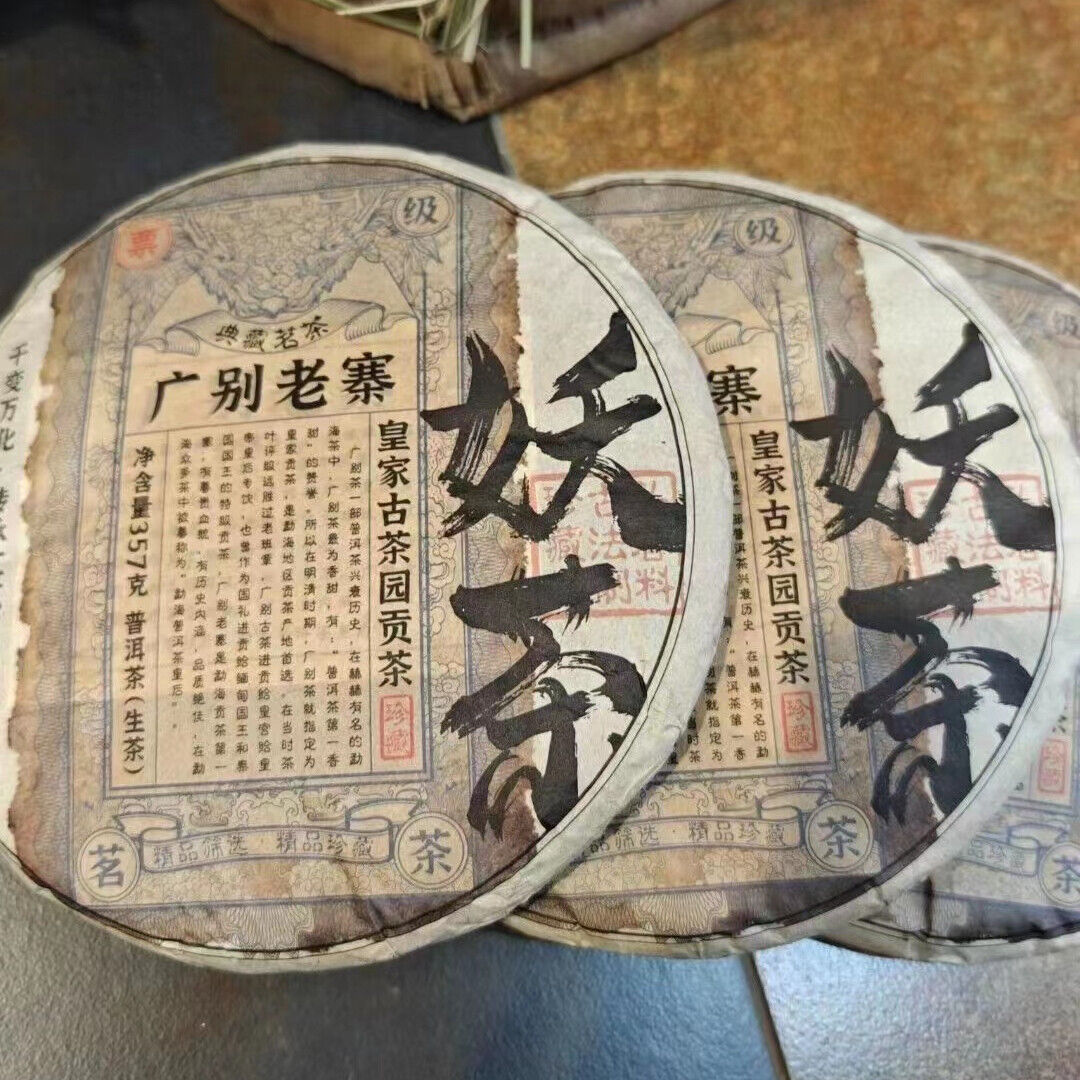 票
级
典藏茗茶
广别老寨
皇家古茶园贡茶
珍藏
广别茶一部普洱茶兴衰历史，在赫赫有名的勐
海茶中，广别茶最为香甜，有：“普洱茶第一香
甜”的赞誉。所以在明清时期，广别茶就指定为
皇家贡茶，是勐海地区贡茶产地首选。在当时茶
叶评级远胜过老班章，广别古茶进贡给皇宫给皇
帝皇后专饮，也曾作为国礼进贡给缅甸国王和泰
国国王的特级贡茶，广别老寨是勐海贡茶第一
寨，有着贵血统，有历史内涵，品质绝佳，在勐
海众多茶中被尊称为“勐海普洱茶皇后”。
净含量357克 普洱茶（生茶）
千变万化
妖茶
茗
精品筛选·精品珍藏
茶
级
寨
皇家古茶园贡茶
珍藏
妖茶
精品珍藏
茶
级
茶
珍藏
品珍藏
茶